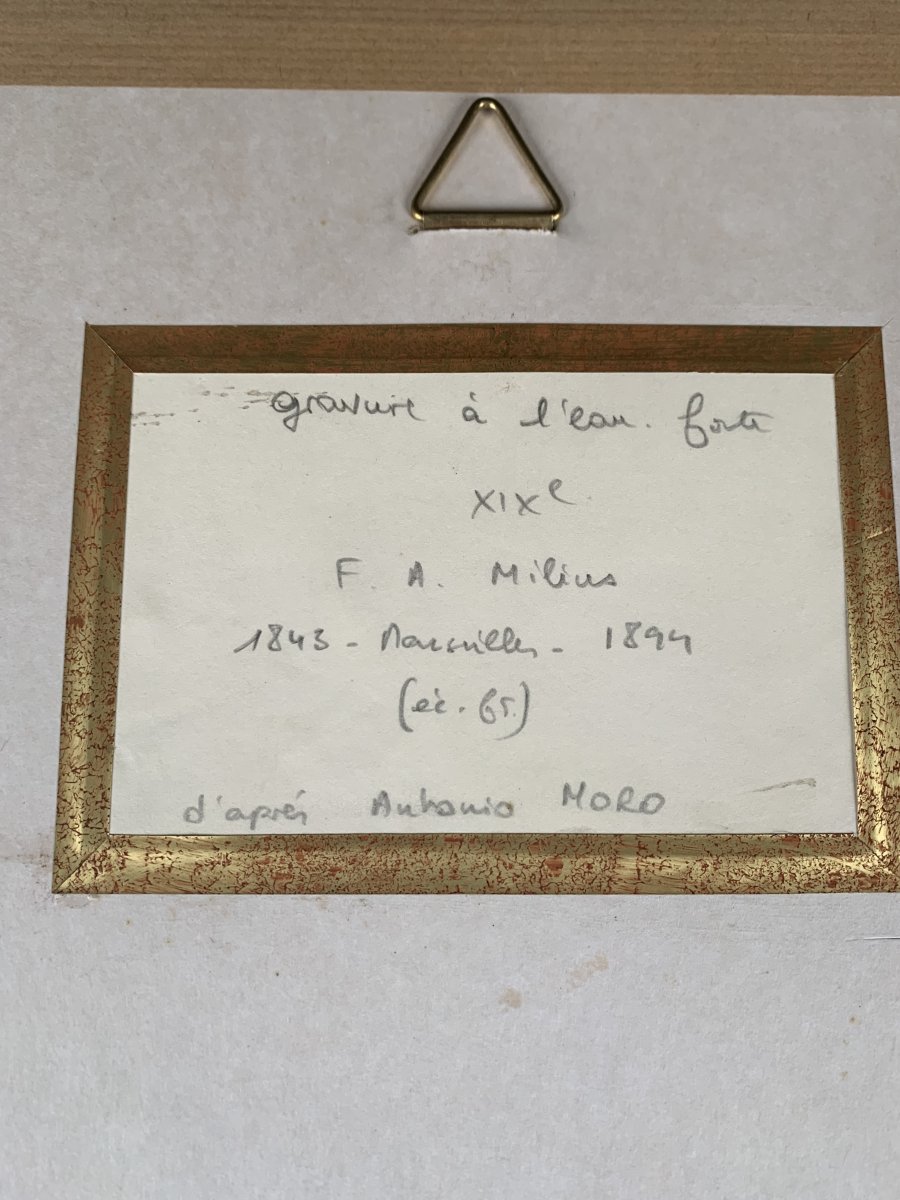 gravure à l'eau. forte
XIXe
F. A. Milius
1843 - Marseille - 1894
(éc. fr.)
d'après Antonio MORO